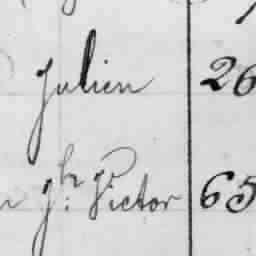 Julien 26
Jh Victor 65